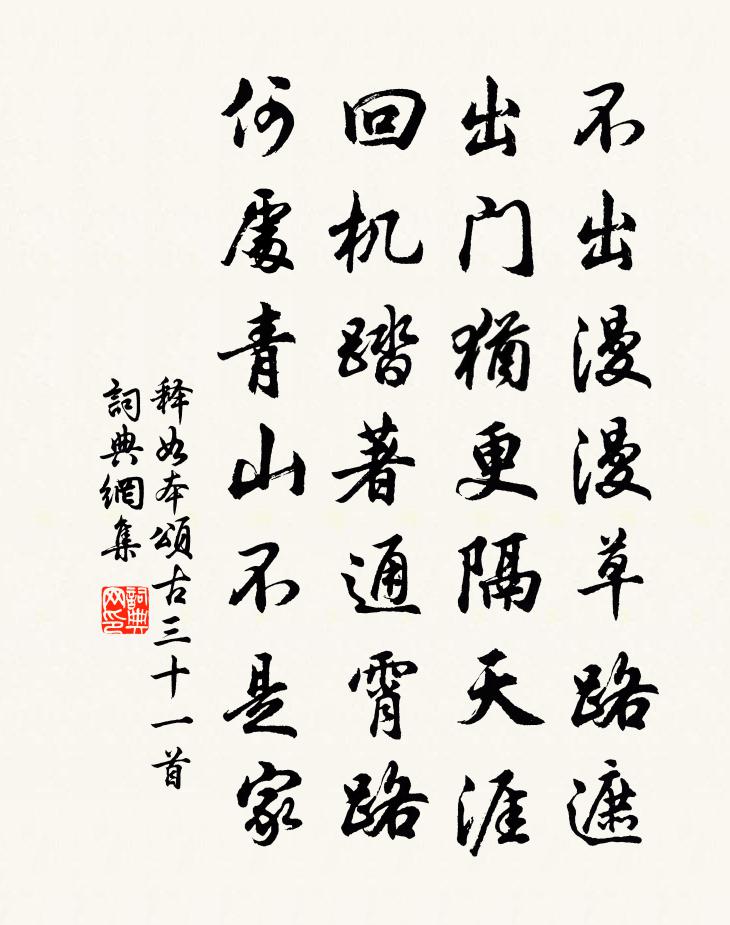 不出漫漫草路遮
出门犹更隔天涯
回机踏著通霄路
何處青山不是家
释如本頌古三十一首
詞典網集
詞典网印